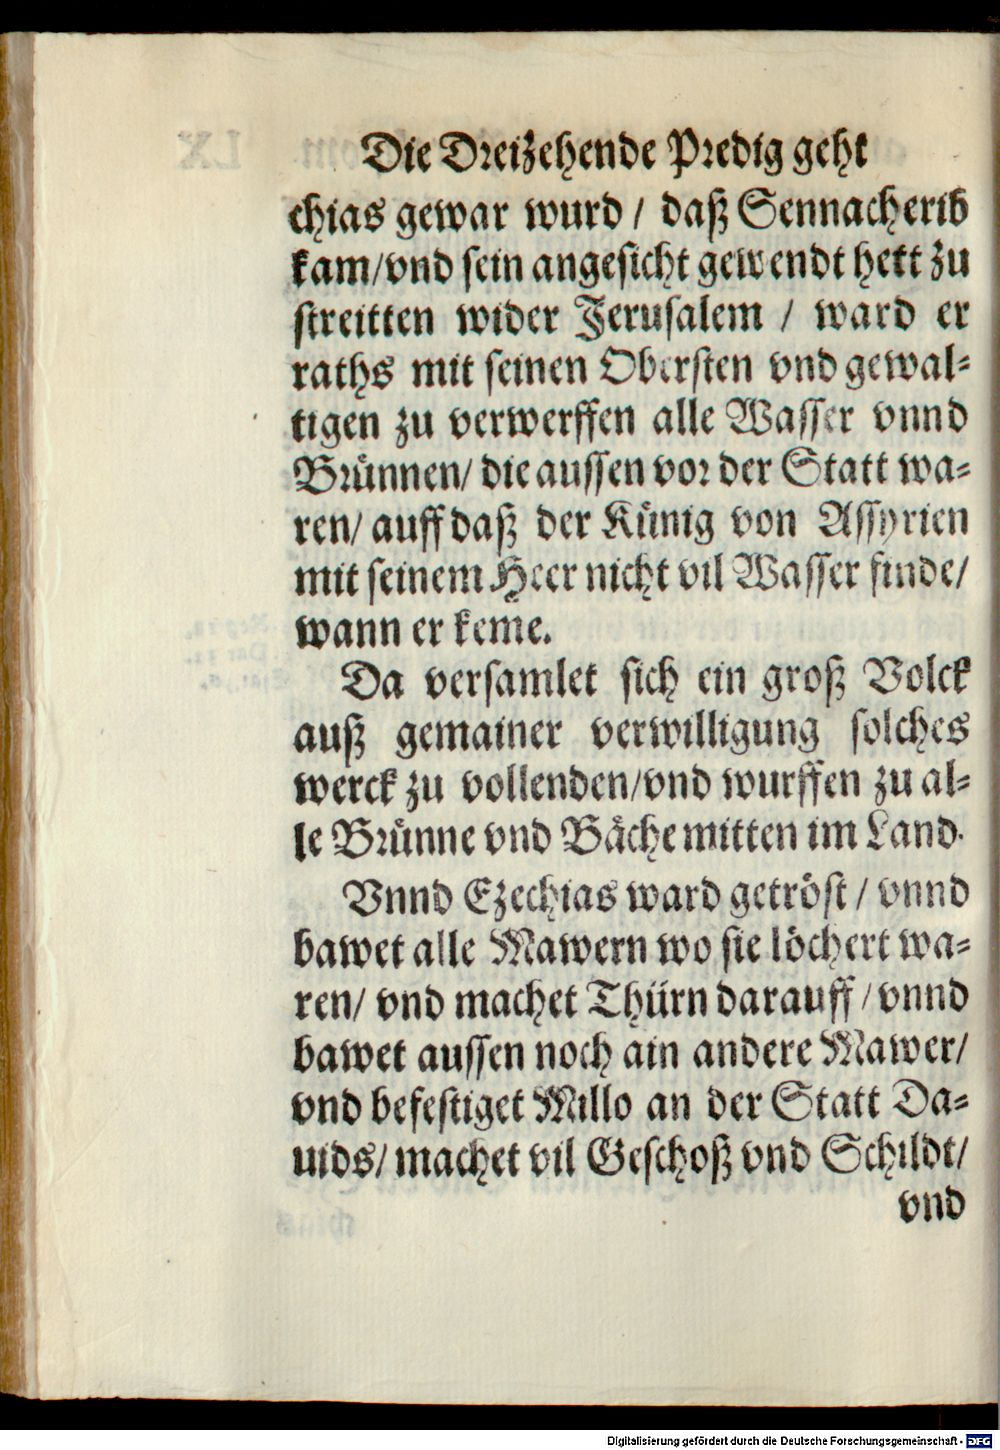 Die Dreizehende Predig geht
chias gewar wurd / daß Sennacherib
kam/vnd sein angesicht gewendt hett zu
streitten wider Jerusalem / ward er
raths mit seinen Obersten vnd gewal-
tigen zu verwerffen alle Wasser vnnd
Brünnen/ die aussen vor der Statt wa-
ren/ auff daß der Künig von Assyrien
mit seinem Heer nicht vil Wasser finde/
wann er keme.
Da versamlet sich ein groß Volck
auß gemainer verwilligung solches
werck zu vollenden/vnd wurffen zu al-
le Brünne vnd Bäche mitten im Land.
Vnnd Ezechias ward getröst / vnnd
bawet alle Mawern wo sie löchert wa-
ren/ vnd machet Thürn darauff / vnnd
bawet aussen noch ain andere Mawer/
vnd befestiget Millo an der Statt Da-
uids/ machet vil Geschoß vnd Schildt/
vnd
Digitalisierung gefördert durch die Deutsche Forschungsgemeinschaft - DFG